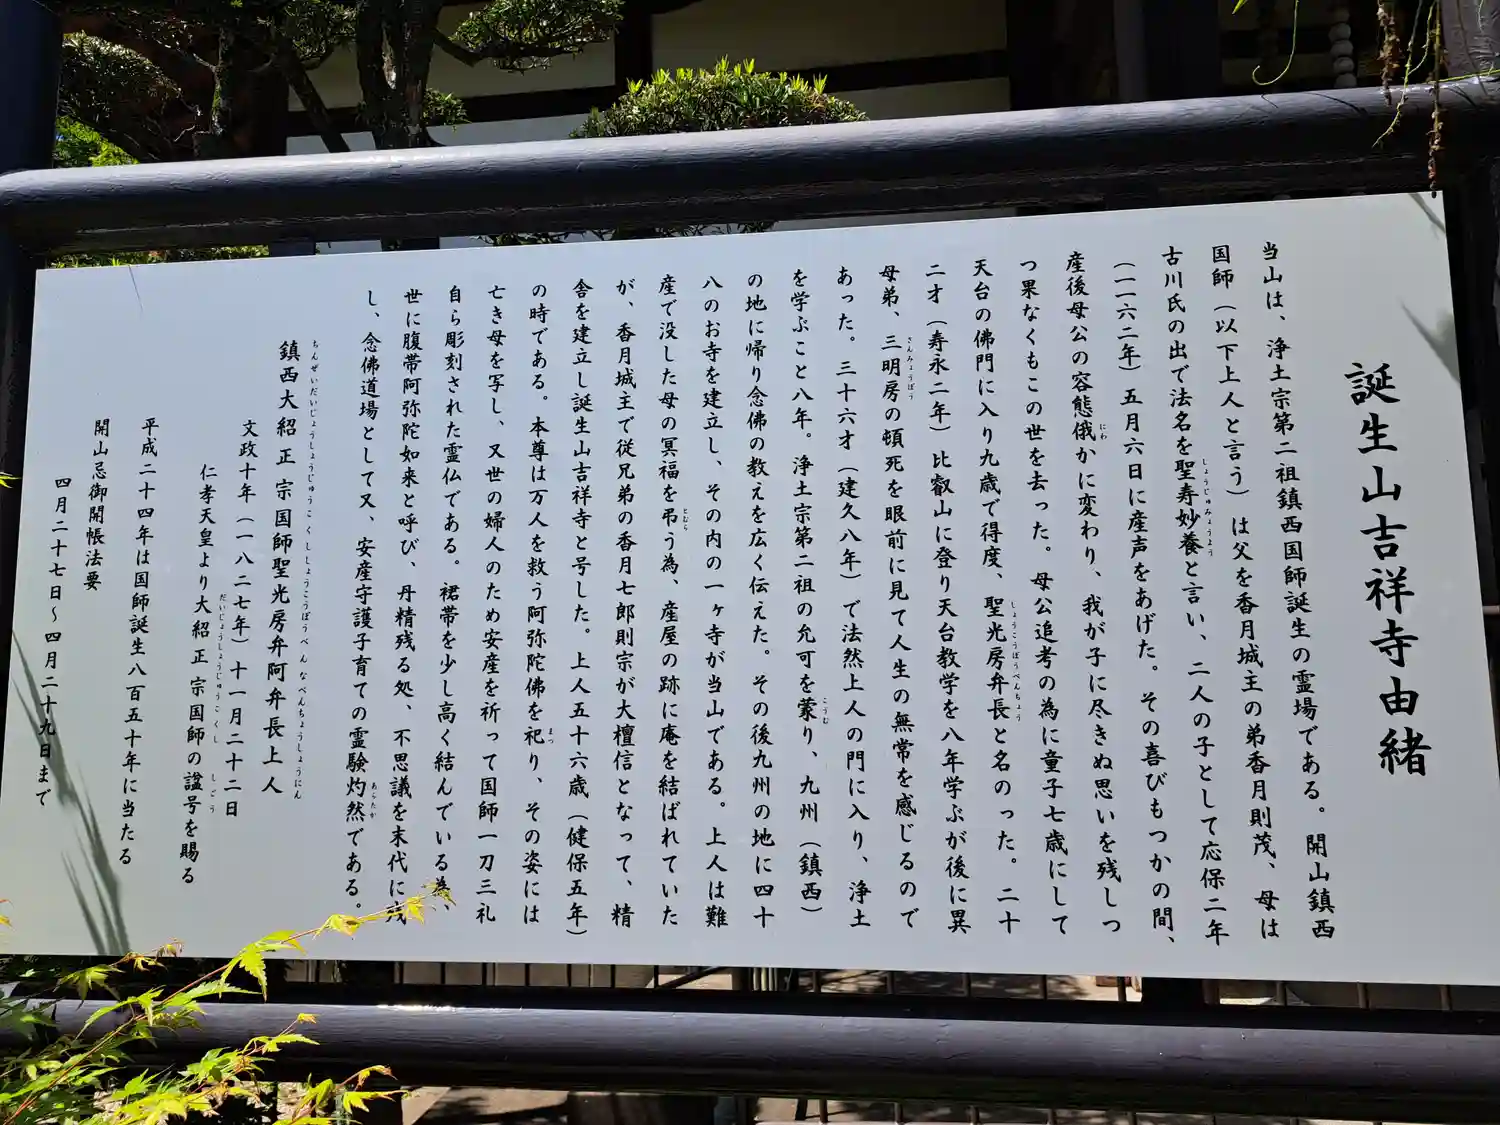 誕生山吉祥寺由緒
当山は、浄土宗第二祖鎮西国師誕生の霊場である。開山鎮西
国師（以下上人と言う）は父を香月城主の弟香月則茂、母は
古川氏の出で法名を聖寿妙養と言い、二人の子として応保二年
しょうじゅみょうよう
（一一六二年）五月六日に産声をあげた。その喜びもつかの間、
産後母公の容態俄かに変わり、我が子に尽きぬ思いを残しつ
にわ
つ果なくもこの世を去った。母公追考の為に童子七歳にして
天台の佛門に入り九歳で得度、聖光房弁長と名のった。二十
しょうこうぼうべんちょう
二才（寿永二年）比叡山に登り天台教学を八年学ぶが後に異
母弟、三明房の頓死を眼前に見て人生の無常を感じるので
さんみょうぼう
あった。三十六才（建久八年）で法然上人の門に入り、浄土
を学ぶこと八年。浄土宗第二祖の允可を蒙り、九州（鎮西）
こうむ
の地に帰り念佛の教えを広く伝えた。その後九州の地に四十
八のお寺を建立し、その内の一ヶ寺が当山である。上人は難
産で没した母の冥福を弔う為、産屋の跡に庵を結ばれていた
とむら
が、香月城主で従兄弟の香月七郎則宗が大檀信となって、精
舎を建立し誕生山吉祥寺と号した。上人五十六歳（健保五年）
の時である。本尊は万人を救う阿弥陀佛を祀り、その姿には
まつ
亡き母を写し、又世の婦人のため安産を祈って国師一刀三礼
自ら彫刻された霊仏である。裙帯を少し高く結んでいる為、
世に腹帯阿弥陀如来と呼び、丹精残る処、不思議を末代に残
し、念佛道場として又、安産守護子育ての霊験灼然である。
あらたか
鎮西大紹正宗国師聖光房弁阿弁長上人
ちんぜいだいじょうしょうじゅうこくししょうこうぼうべんなべんちょうしょうにん
文政十年（一八二七年）十一月二十二日
仁孝天皇より大紹正宗国師の諡号を賜る
だいじょうしょうじゅうこくし しごう
平成二十四年は国師誕生八百五十年に当たる
開山忌御開帳法要
四月二十七日～四月二十九日まで